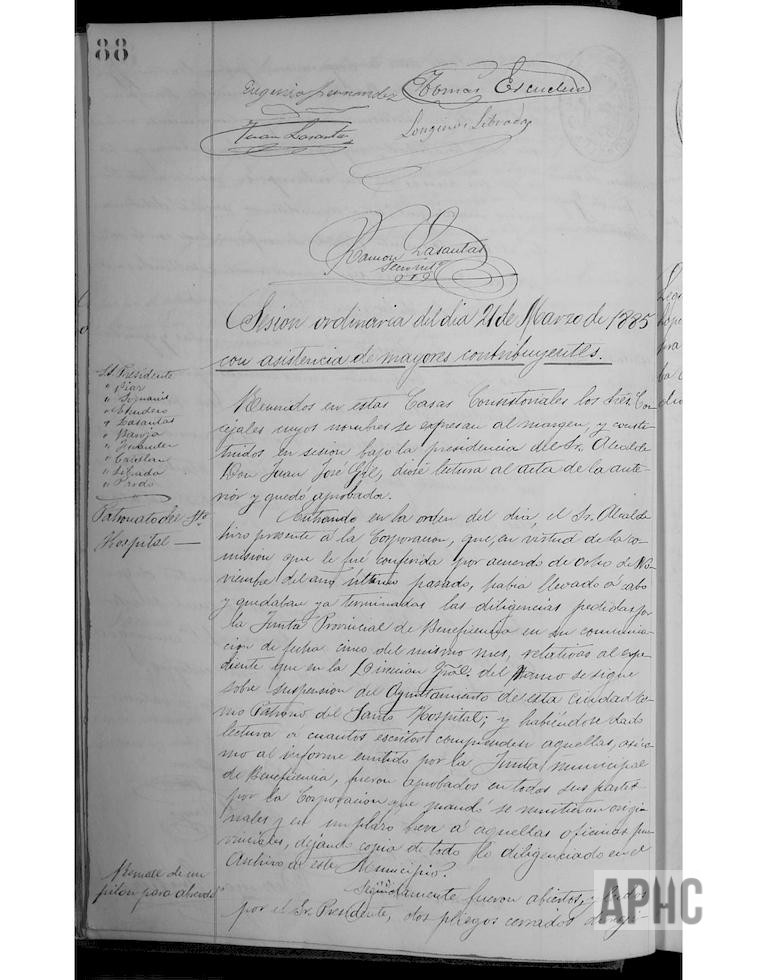 88
Eugenio Fernandez Tomas Escudero
Juan Lasantas Longinos Librada
Ramon Lasantas
Secret.º
Sesion ordinaria del dia 21 de Marzo de 1885
con asistencia de mayores contribuyentes.
S.S. Presidente
" Piar
"
" Escudero
" Lasantas
" Baroja
" Fernander
" Castellan
" Librada
" Pardo
Patronato del Sto.
Hospital —
Reunidos en estas Casas Consistoriales los Sres. Con-
cejales cuyos nombres se expresan al margen, y consti-
tuidos en sesion bajo la presidencia del Sr. Alcalde
Don Juan José Gil, dióse lectura al acta de la ante-
rior y quedó aprobada.
Entrando en la orden del dia, el Sr. Alcalde
hizo presente á la Corporacion, que, en virtud de la co-
mision que le fué conferida por acuerdo de ocho de No-
viembre del año último pasado, habia llevado á cabo
y quedaban ya terminadas las diligencias pedidas por
la Junta Provincial de Beneficencia en su comunica-
cion de fecha cinco del mismo mes, relativas al espe-
diente que en la Direccion Gral. del Ramo se sigue
sobre suspension del Ayuntamiento de esta ciudad co-
mo Patrono del Santo Hospital; y habiéndose dado
lectura a cuantos escritos comprenden aquellas, asi co-
mo al informe emitido por la Junta municipal
de Beneficencia, fueron aprobados en todas sus partes
por la Corporacion que mandó se remitieran origi-
nales y en un plazo breve á aquellas oficinas pro-
vinciales, dejando copia de todo lo diligenciado en el
Archivo de este Municipio.
Remate de un
pilon para abreved.º
Seguidamente fueron abiertos, y leidos
por el Sr. Presidente, dos pliegos cerrados
APHC